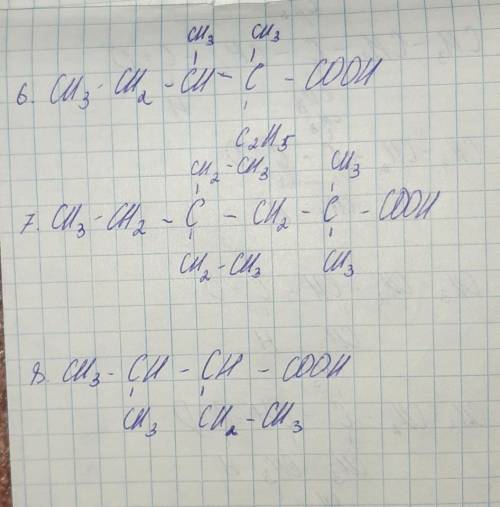 CH3 CH3
6. CH3 - CH2 - CH - C - COOH
C2H5
CH2 - CH3 CH3
7. CH3 - CH2 - C - CH2 - C - COOH
CH2 - CH3 CH3
8. CH3 - CH - CH - COOH
CH3 CH2 - CH3